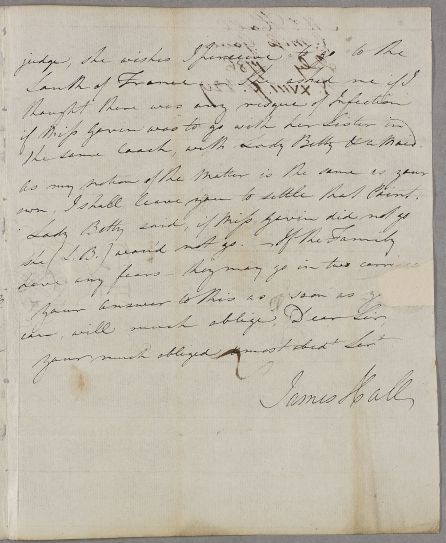 judge, she wishes I perceive to go to the
South of France. She asked me if I
thought there was any risque of Infection
if Miss Gavin was to go with her Sister in
the same Coach, with Lady Betty & a Maid.
as my notion of the Matter is the same as your
own, I shall leave you to settle that Point.
Lady Betty said, if Miss Gavin did not go
she [L. B.] would not go. - If the Family
have any fears they may go in two carri
your Answer to this as soon as y
can, will much oblige Dear Sir,
your much obliged & most obedt Sert
James Hall